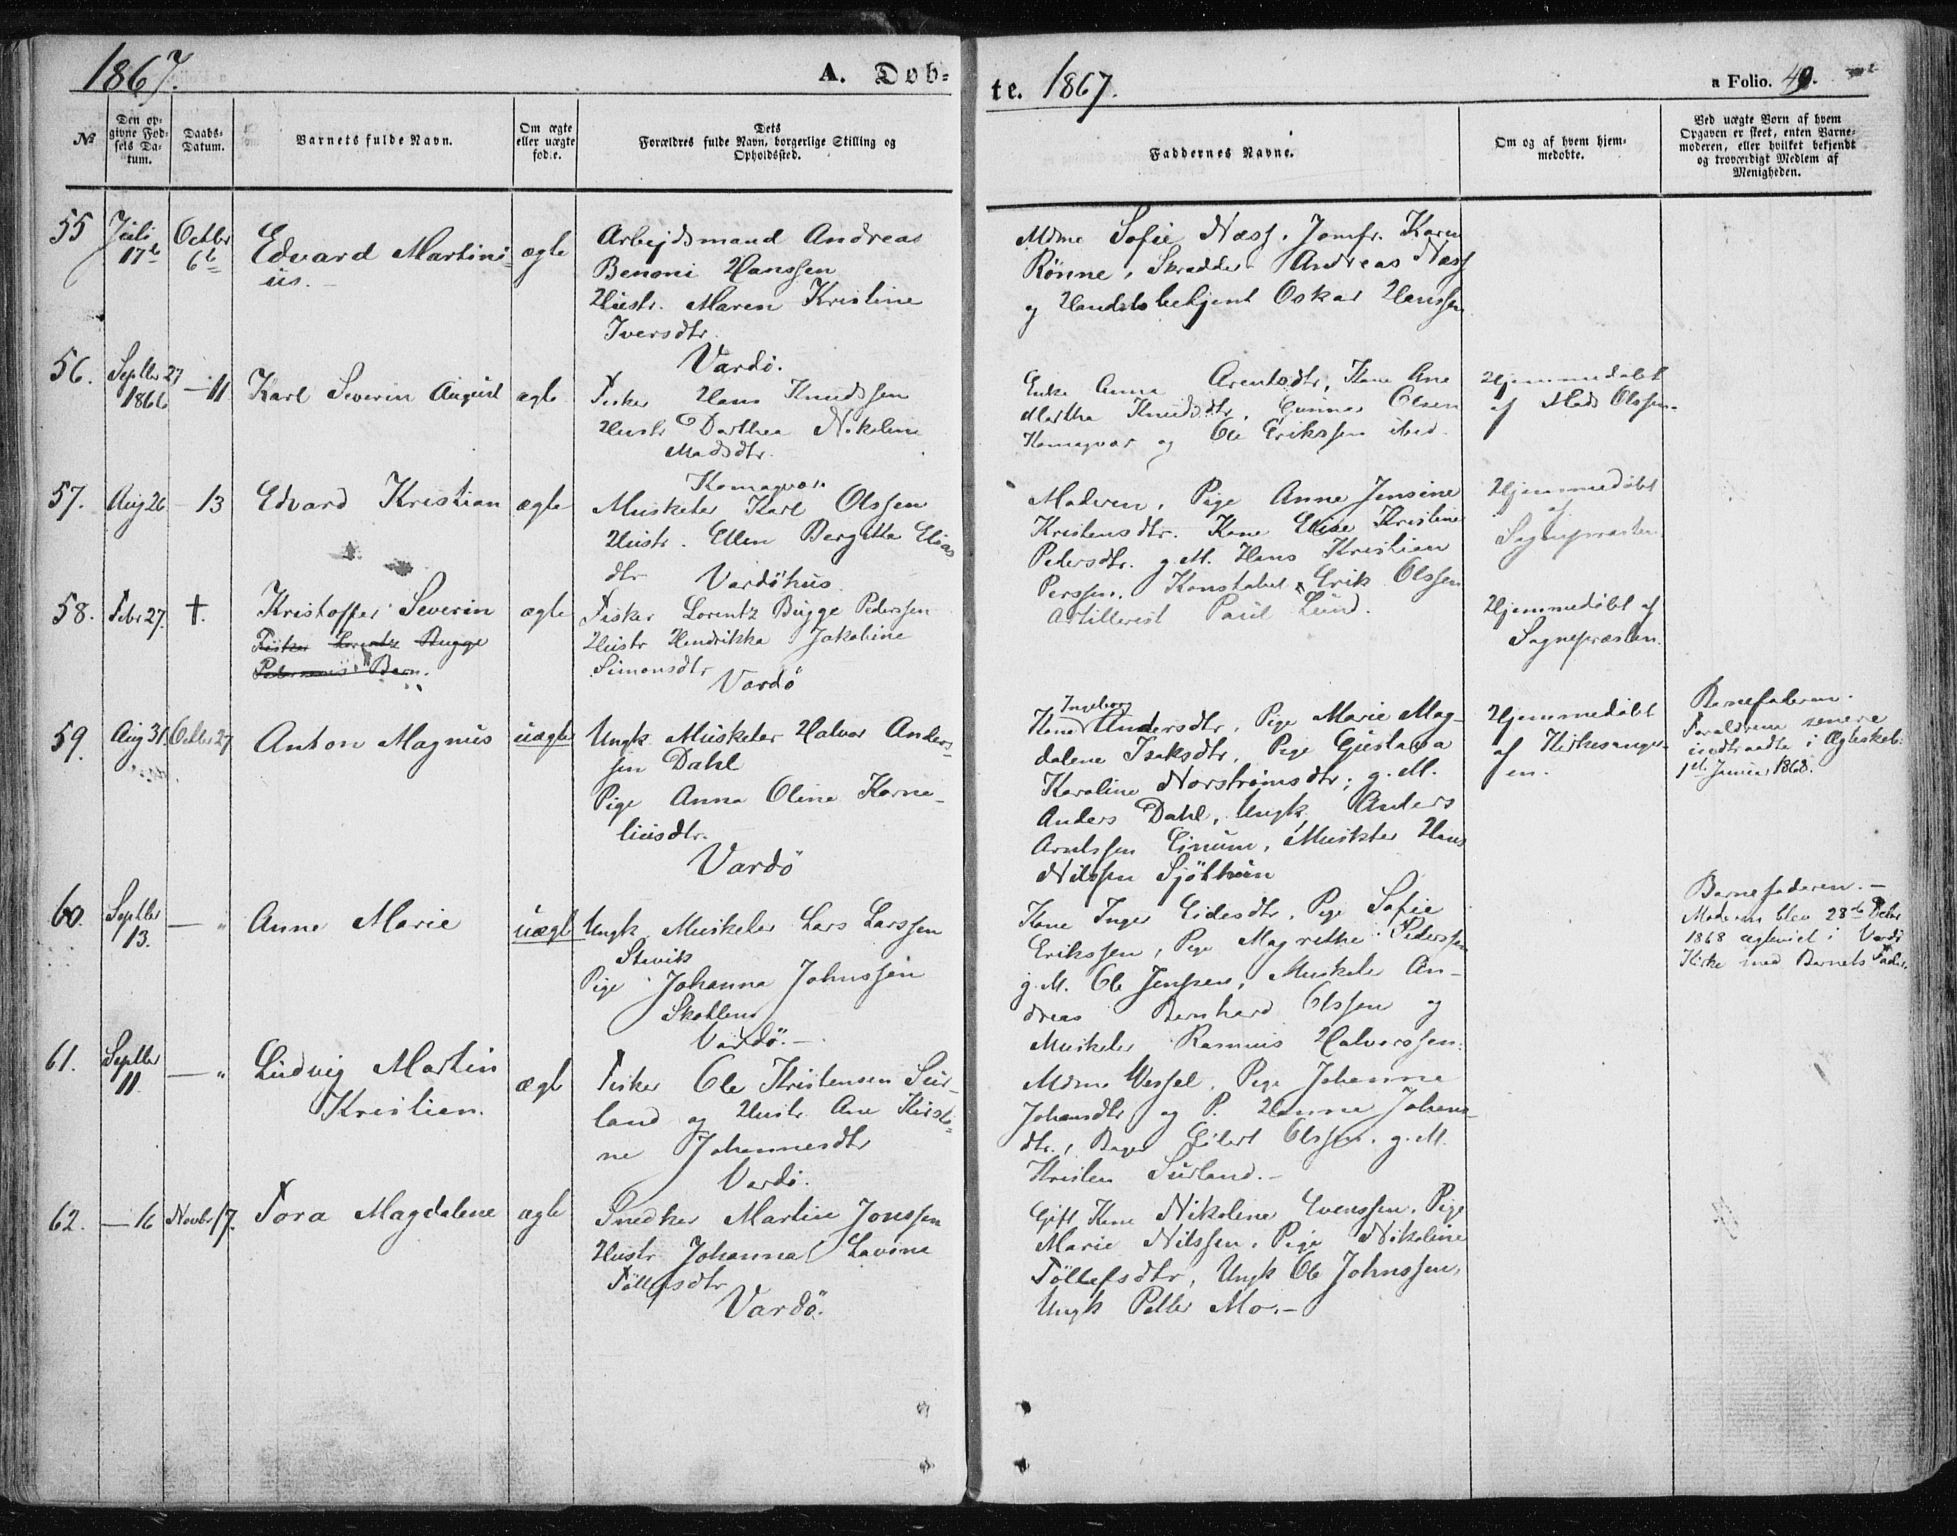 1867. A. Døb-
te. 1867. a Folio. 49.
№
Den op-
givne Fød-
sels Da-
tum.
Daabs-
Datum.
Barnets fulde Navn.
Om ægte
eller uægte
fød:e.
Dets
Forældres fulde Navn, borgerlige Stilling og
Opholdssted.
Faddernes Navne.
Om og af hvem hjem-
medøbte.
Ved uægte Børn af hvem
Opgaven er skeet, enten Barne-
moderen, eller hvilket bekjendt
og troværdigt Medlem af
Menigheden.
55 Juli 17de Octbr 6te
Edvard Martini=
us.
ægte
Arbejdsmand Andreas
Benoni Hanssen
Hustr. Maren Kristine
Iversdtr.
Vardö.
Mdme Sofie Næss, Jomfr. Karen
Rönne, Skrædder Andreas Næss
og Handelsbetjent Oskar Hanssen
56. Septbr 27 1866 — 11
Karl Severin August
ægte
Fisker Hans Knudssen
Hustr Dorthea Nikoline
Madsdtr.
Komagvær
Enke Anna Arentsdtr, Kone Ane
Martha Knudsdtr, Gunnar Olsen
Komagvær og Ole Erikssen ibid.
Hjemmedøbt
af Mads Olssen.
57. Aug 26 — 13
Edvard Kristian
ægte
Musketer Karl Olssen
Hustr. Ellen Bergitta Elias
dtr Vardöhus.
Moderen, Pige Anne Jensine
Kristensdtr. Kone Elise Kristine
Pedersdtr. g.M. Hans Kristian
Perssen, Konstabel Erik Olssen
Artillerist Paul Lund.
Hjemmedøbt
af
Sognepræsten
58. Febr 27. †.
Kristoffer Severin
Fisker Lorentz Bugge
Pedersens Barn.
ægte
Fisker Lorentz Bugge Pederssen
Hustr Hendrikka Jakobine
Simonsdtr
Vardö
Hjemmedøbt af
Sognepræsten.
59. Aug 31. Octbr 27
Anton Magnus
uægte
Ungk Musketer Halvor Anders-
sen Dahl
Pige Anna Oline Korne-
liusdtr.
Vardö
Ingeborg
Kone Andersdtr, Pige Marie Mag-
dalene Isaksdtr, Pige Gustava
Karoline Norströmsdtr; g.M.
Anders Dahl, Ungk. Anders
Arntssen, Musketer Hans
Nilssen
Hjemmedøbt
af Kirkesanger-
en.
Barnefaderen.
Forældrene senere
indtraadte i Ægteskab
1868.
60. Septbr 13. — "
Anne Marie
uægte
Ungk Musketer Lars Larssen
Stuvik
Pige Johanna Johnssen
Vardö.
Kone Inger Eidesdtr, Pige Sofie
Erikssen, Pige Magrethe Pederssen
g.M. Ole Jenssen, Musketer An-
dreas Bernhard Olssen og
Musketer Rasmus Halvorssen.
Barnefaderen. —
Moderen blev 28de
1868 ægteviet i Vardö
Kirke med Barnets Fader.
61. Septbr 11. — "
Ludvig Martin
Kristian.
ægte
Fisker Ole Kristensen Sur-
land og Hustr. Ane Kirsti=
ne Johannesdtr
Vardö.
Mdme Wessel, Pige Johanna
Johansdtr og P. Hanna Johans-
dtr, Bager Eilert Olssen, g.M.
Kristen Surland. —
62. — 16 Novbr 17.
Tora Magdalene
ægte
Snedker Martin Jonssen
Hustr Johanna Lavina
Töllefsdtr
Vardö.
Gift Kone Nikoline Evenssen, Pige
Marie Nilssen, Pige Nikoline
Töllefsdtr, Ungk Ole Johnssen,
Ungk Petter Mo. —